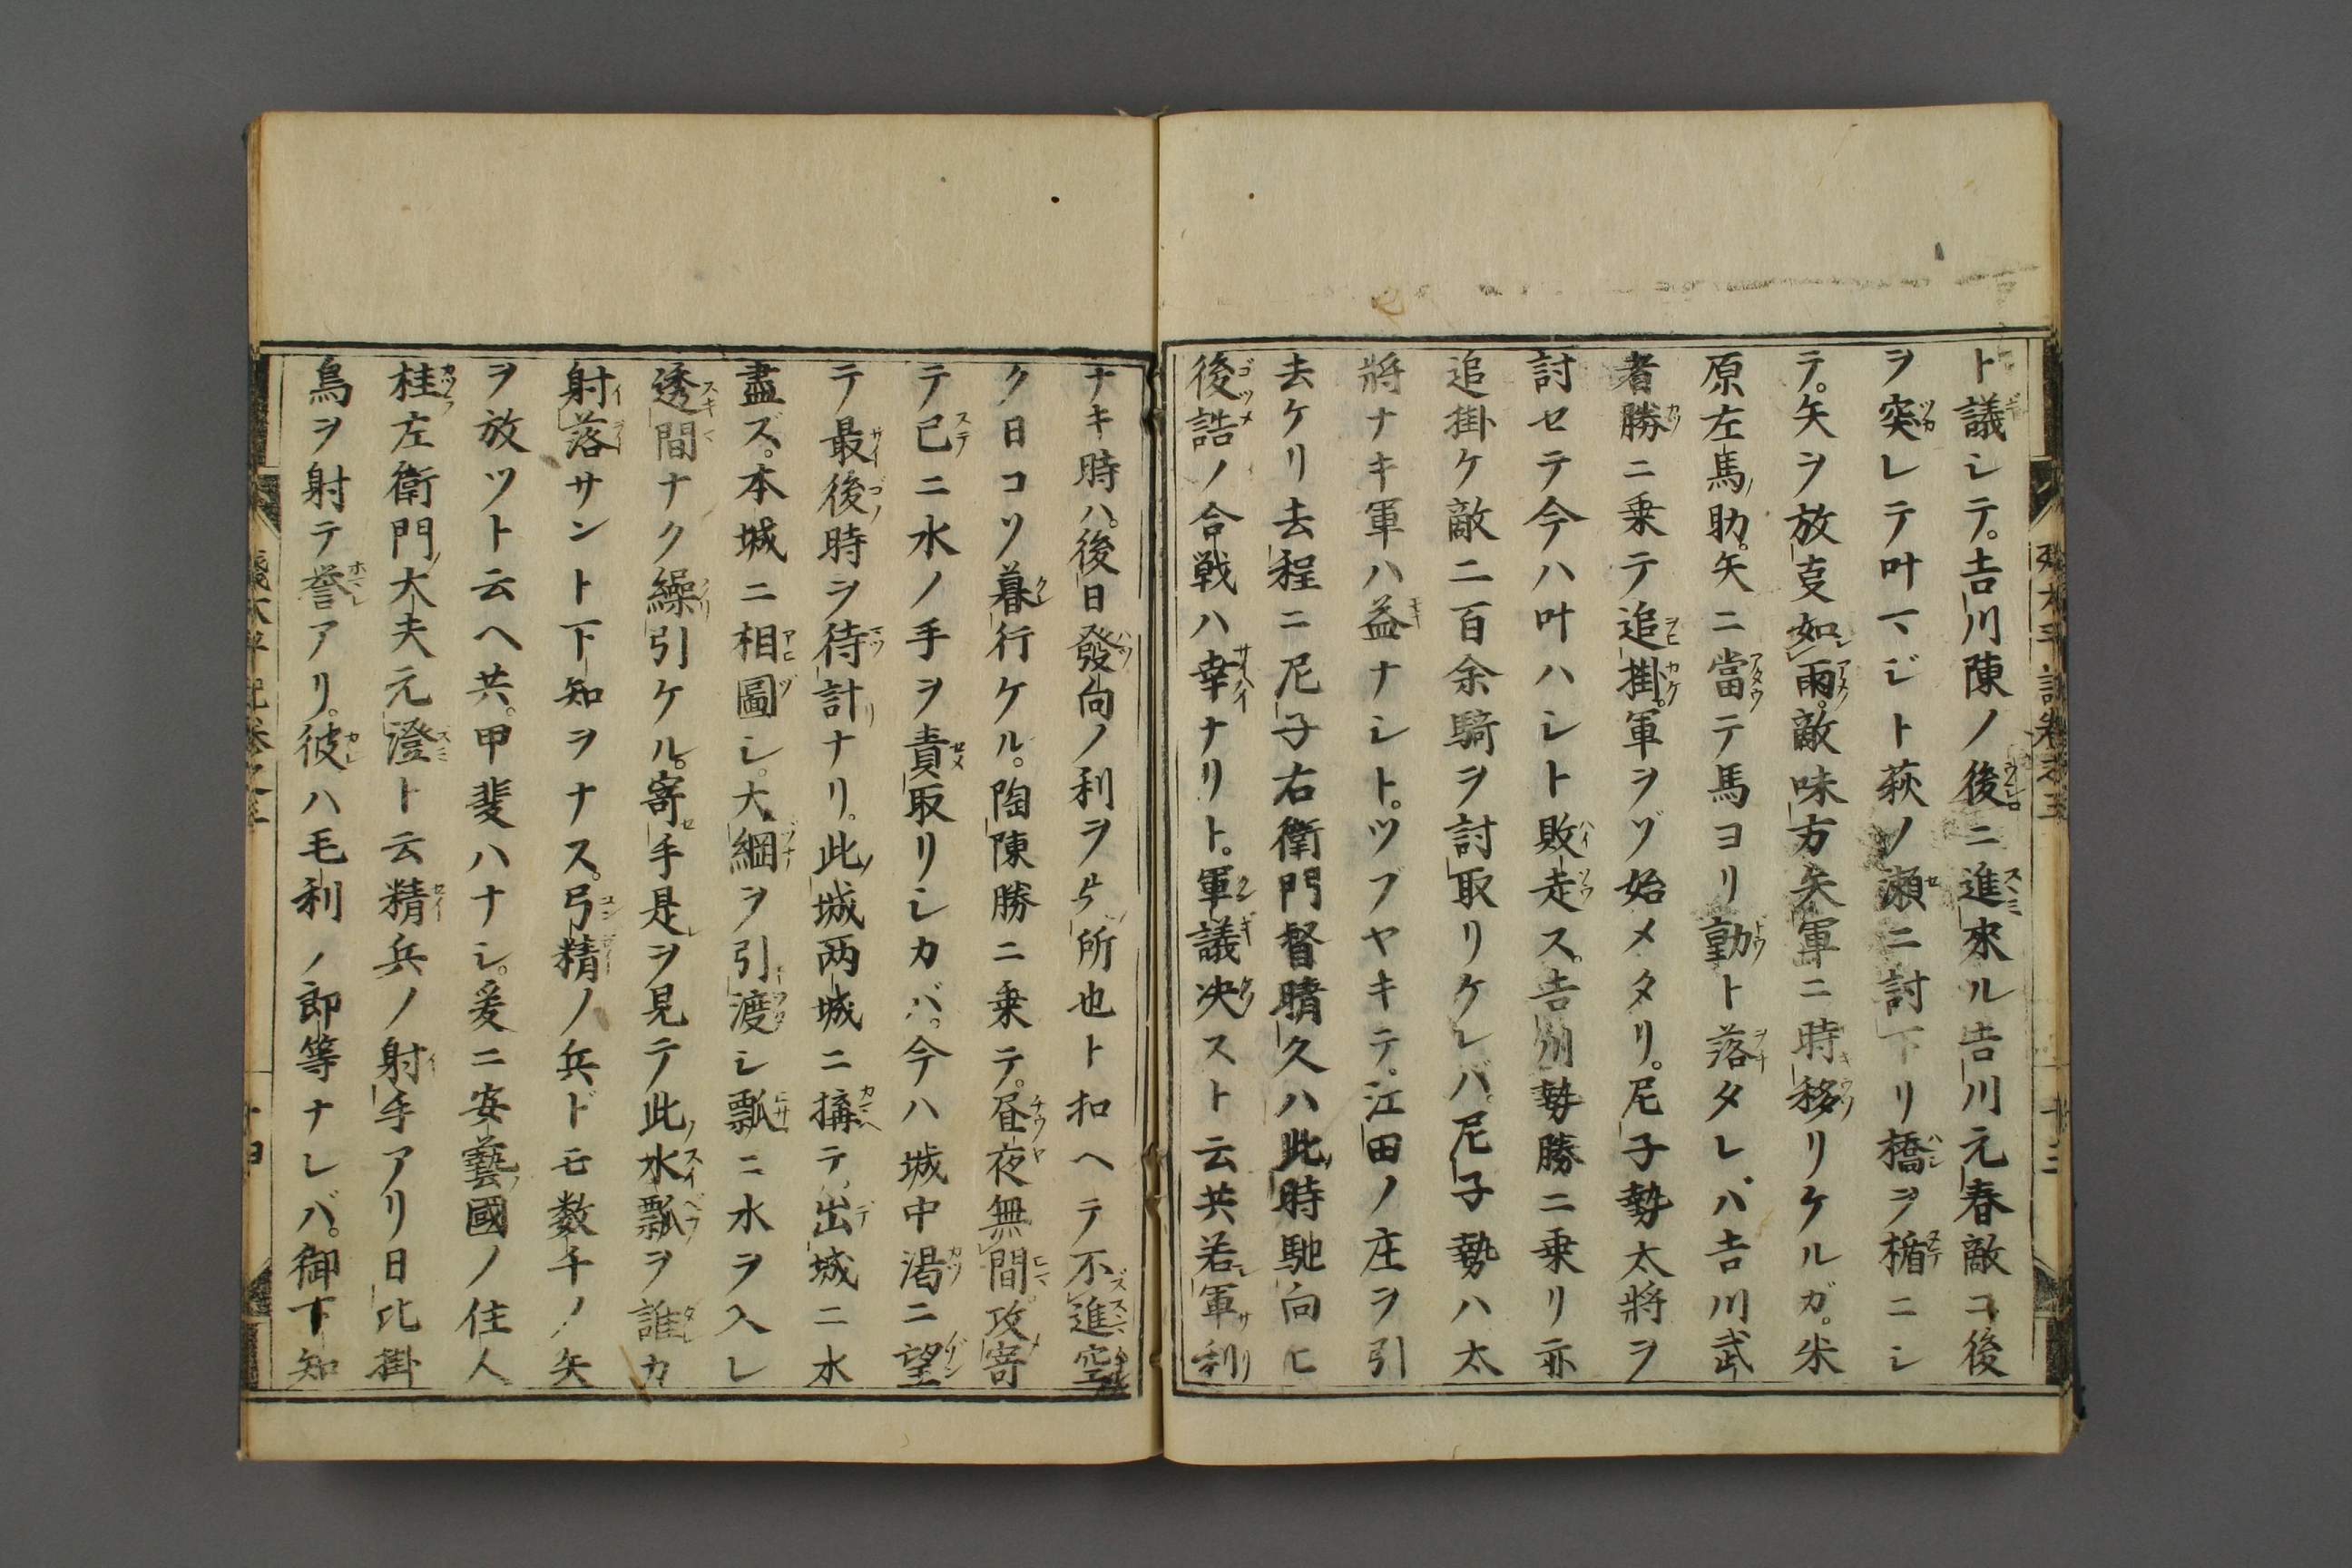 ト議シテ。吉川陳ノ後ニ進來ル吉川元春敵コ後
ヲ突レテ叶マジト萩ノ瀬ニ討下リ橋ヲ楯ニシ
テ。矢ヲ放支如雨。敵味方矢軍ニ時移リケルガ。米
原左馬助。矢ニ當テ馬ヨリ動ト落タレバ吉川武
者勝ニ乗テ追掛。軍ヲゾ始メタリ。尼子勢太將ヲ
討セテ今ハ叶ハシト敗走ス。吉川勢勝ニ乗リ亦
追掛ケ敵二百余騎ヲ討取リケレバ。尼子勢ハ太
將ナキ軍ハ益ナシト。ツブヤキテ。江田ノ庄ヲ引
去ケリ去程ニ尼子右衛門督晴久ハ此時馳向ヒ
後詰ノ合戦ハ幸ナリト。軍議决スト云共若軍利
ナキ時ハ。後日發向ノ利ヲ失所也ト扣ヘテ不進空
ク日コソ暮行ケル。陶陳勝ニ乗テ。昼夜無間攻寄
テ已ニ水ノ手ヲ責取リシカバ。今ハ城中渇ニ望
テ最後時ヲ待計ナリ。此城两城ニ搆テ。出城ニ水
盡ズ。本城ニ相圖シ。大綱ヲ引渡シ瓢ニ水ヲ入レ
透間ナク繰引ケル。寄手是ヲ見テ此水瓢ヲ誰カ
射落サント下知ヲナス。弓精ノ兵ドモ数千ノ矢
ヲ放ツト云ヘ共。甲斐ハナシ。爰ニ安藝國ノ住人
桂左衛門大夫元澄ト云精兵ノ射手アリ日比掛
鳥ヲ射テ誉アリ。彼ハ毛利ノ郎等ナレバ。御下知